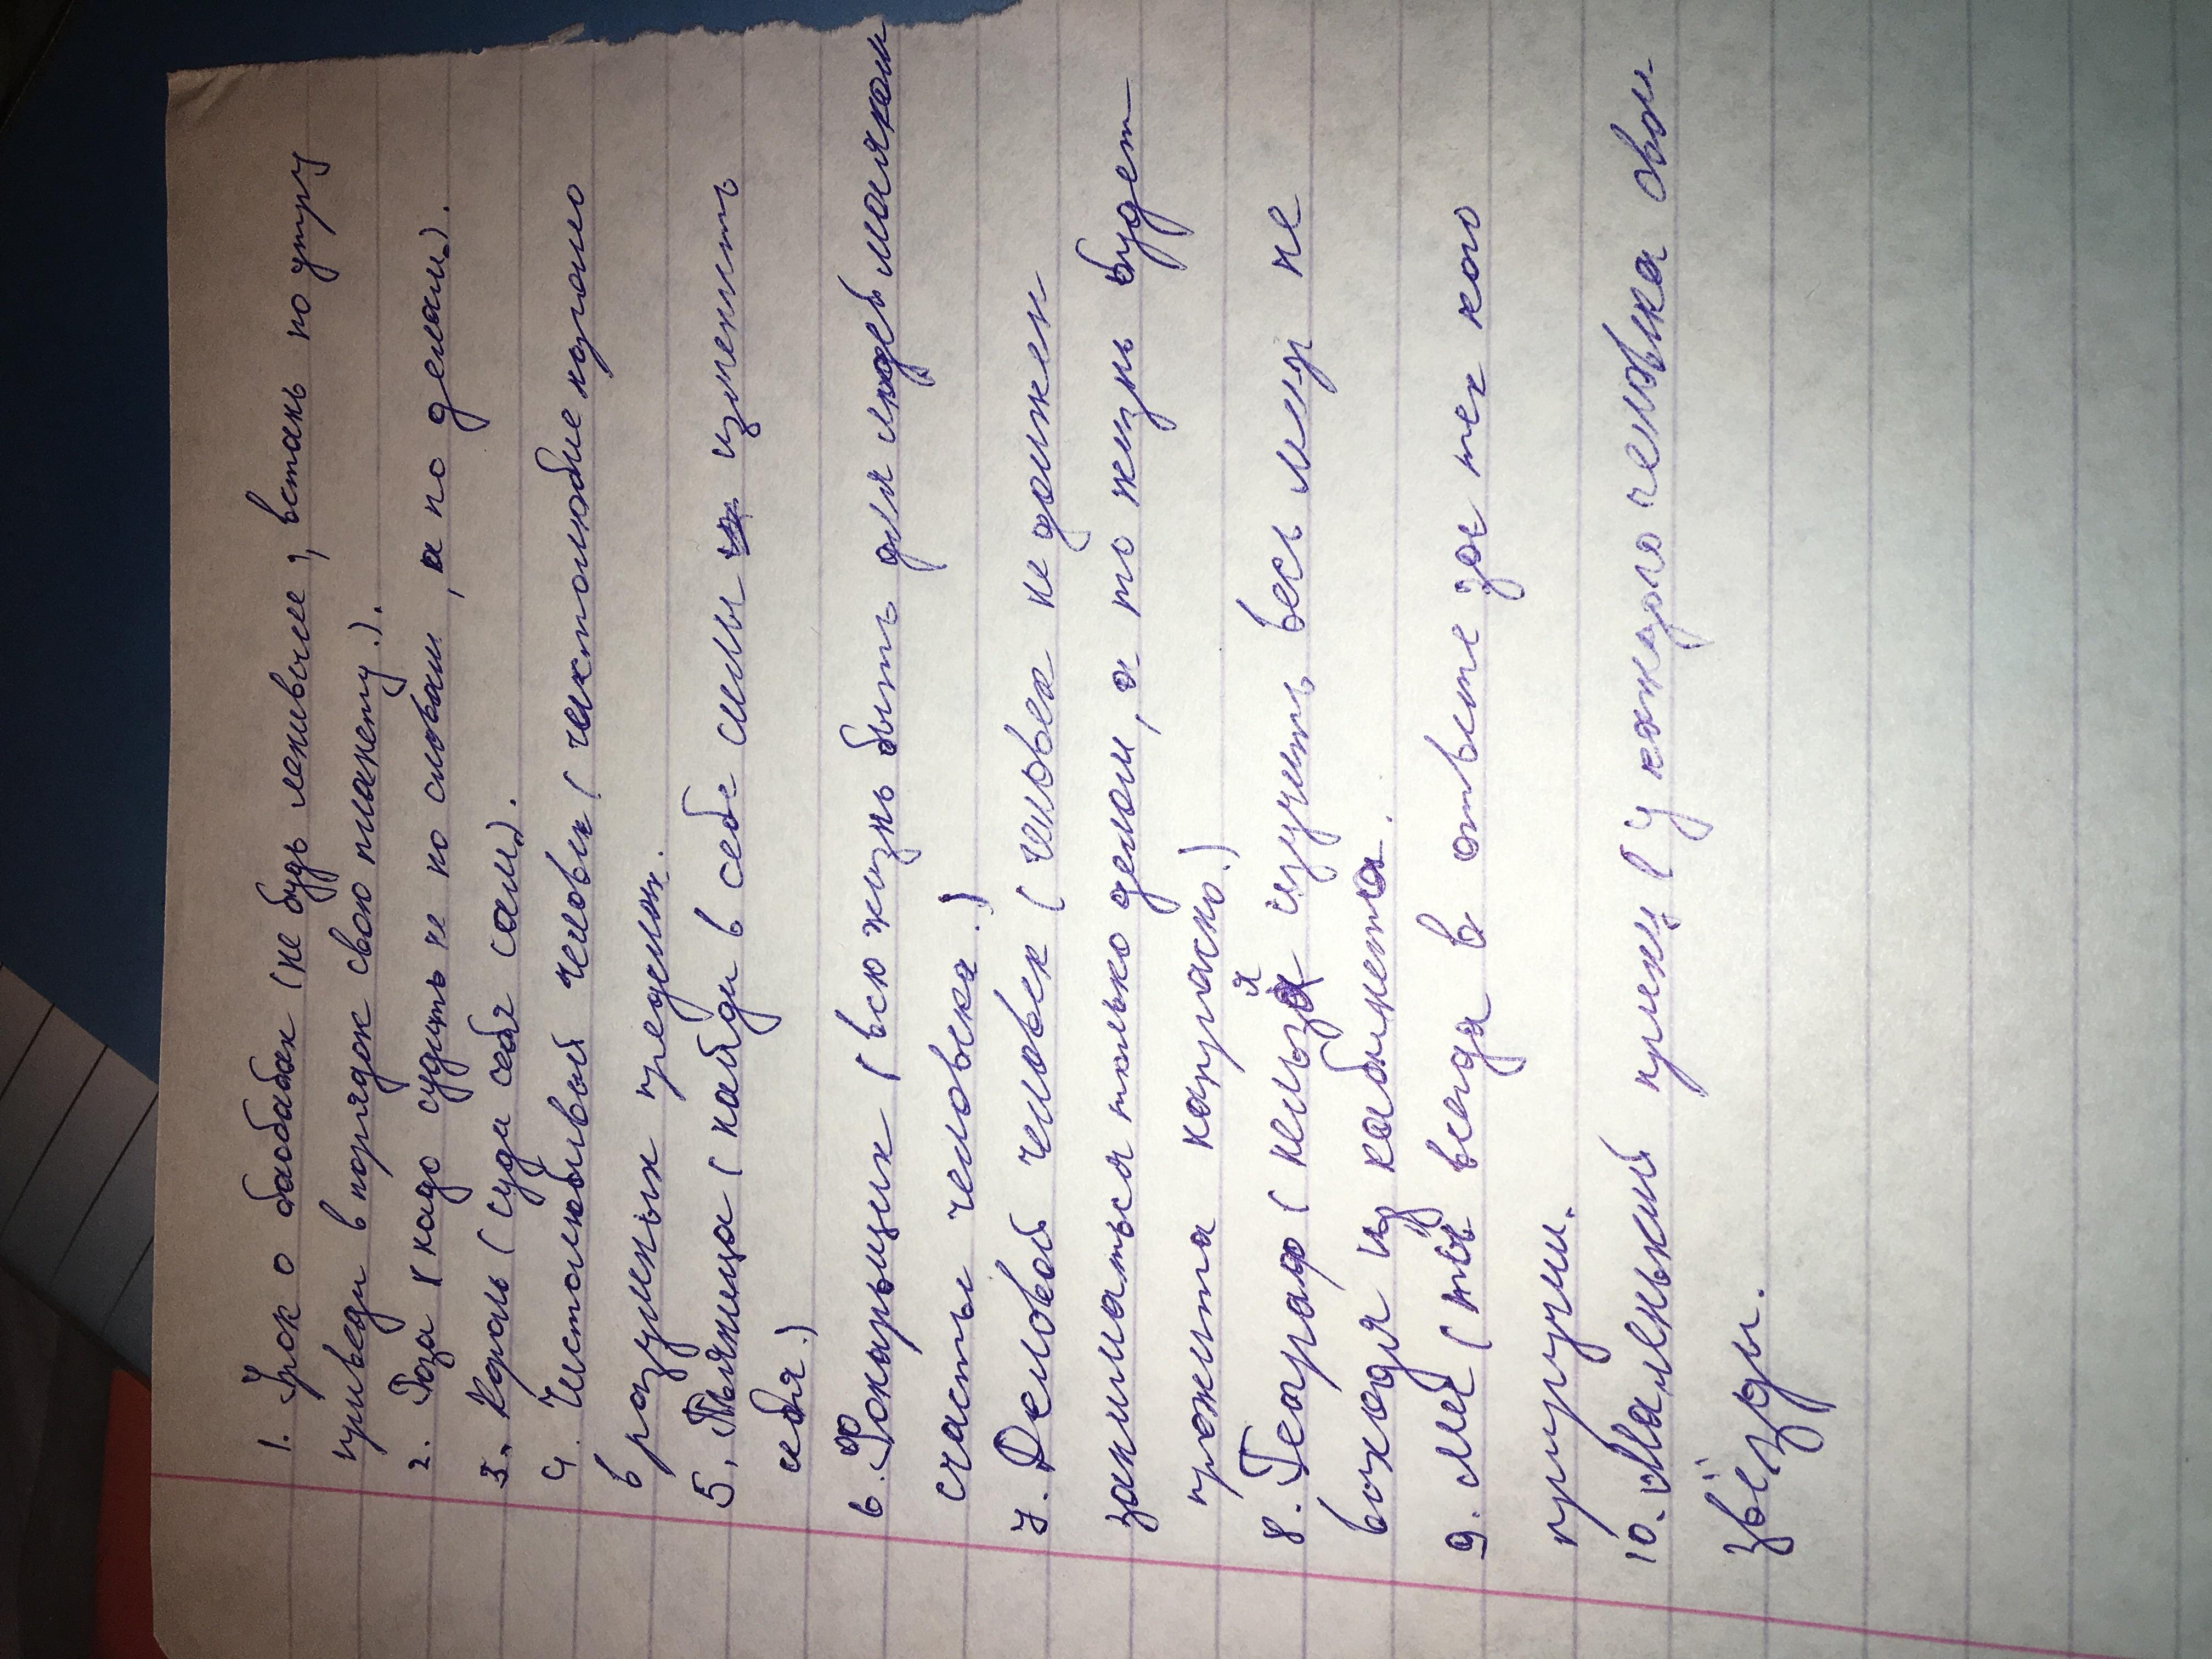 1. Урок о баобабах (не будь ленивым; встань по утру
приведи в порядок свою планету).
2. Роза (надо судить не по словам, а по делам).
3. Король (суди себя сам).
4. Честолюбивый человек (честолюбие хорошо
в разумных пределах.
5. Пьяница (найди в себе силы изменить
себя.)
6. Фонарьщик (всю жизнь быть для людей маяком
счастье человека.)
7. Деловой человек (человек не должен
заниматься только делом, а то жизнь будет
прожита напрасно.)
8. Географ (нельзя изучить весь мир не
выходя из кабинета.
9. Лис (ты всегда в ответе за тех кого
приручил.
10. Маленький принц (у каждого человека свои
звёзды.